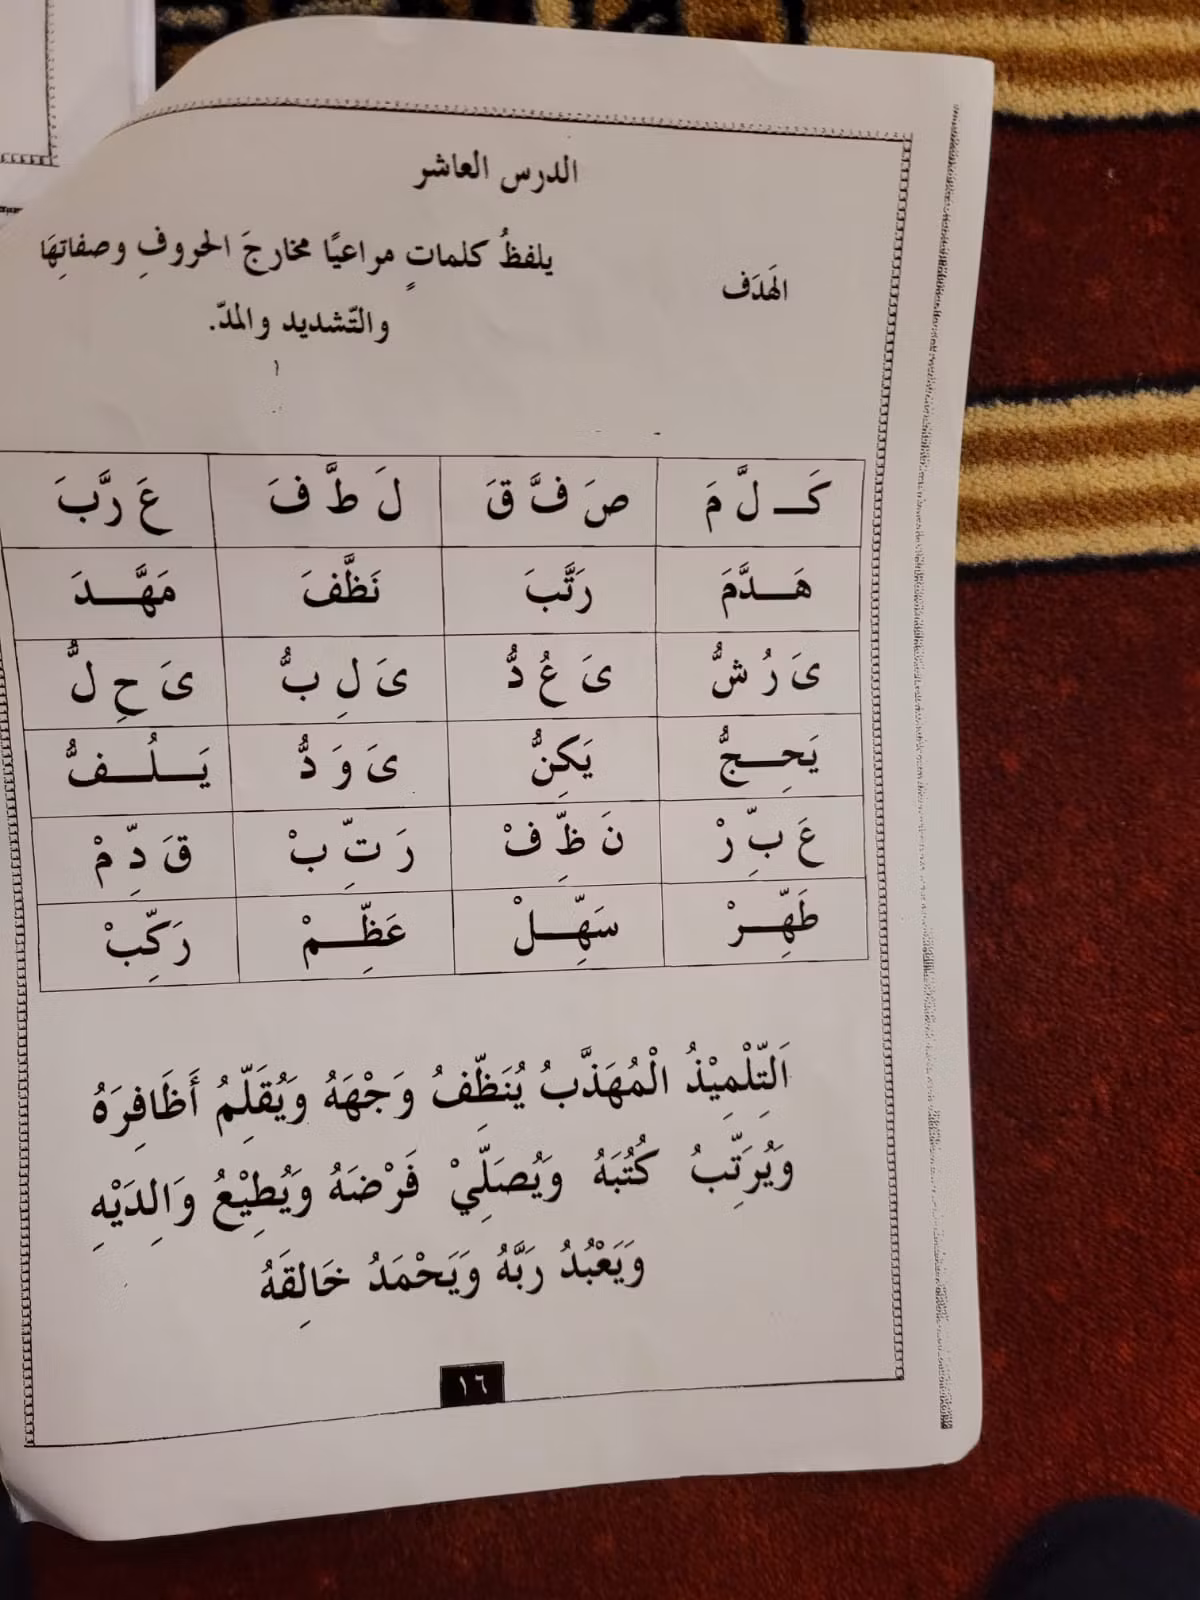 الدرس العاشر
الهَدَف
يلفظُ كلماتٍ مراعيًا مخارجَ الحروفِ وصفاتِهَا
والتّشديد والمدّ.
كَـ لَّ مَ صَ فَّ قَ لَ طَّ فَ عَ رَّبَ
هَـدَّمَ رَتَّبَ نَظَّفَ مَهَّـدَ
ىَ رُ شُّ ىَ عُ دُّ ىَ لِ بُّ ىَ حِ لُّ
يَحِـجُّ يَكِنُّ ىَ وَ دُّ يَـلُـفُّ
عَ بِّ رْ نَ ظِّ فْ رَ تِّ بْ قَ دِّ مْ
طَهِّـرْ سَهِّـلْ عَظِّـمْ رَكِّبْ
اَلتِّلْمِيْذُ الْمُهَذَّبُ يُنَظِّفُ وَجْهَهُ وَيُقَلِّمُ أَظَافِرَهُ
وَيُرَتِّبُ كُتُبَهُ وَيُصَلِّيْ فَرْضَهُ وَيُطِيْعُ وَالِدَيْهِ
وَيَعْبُدُ رَبَّهُ وَيَحْمَدُ خَالِقَهُ
١٦